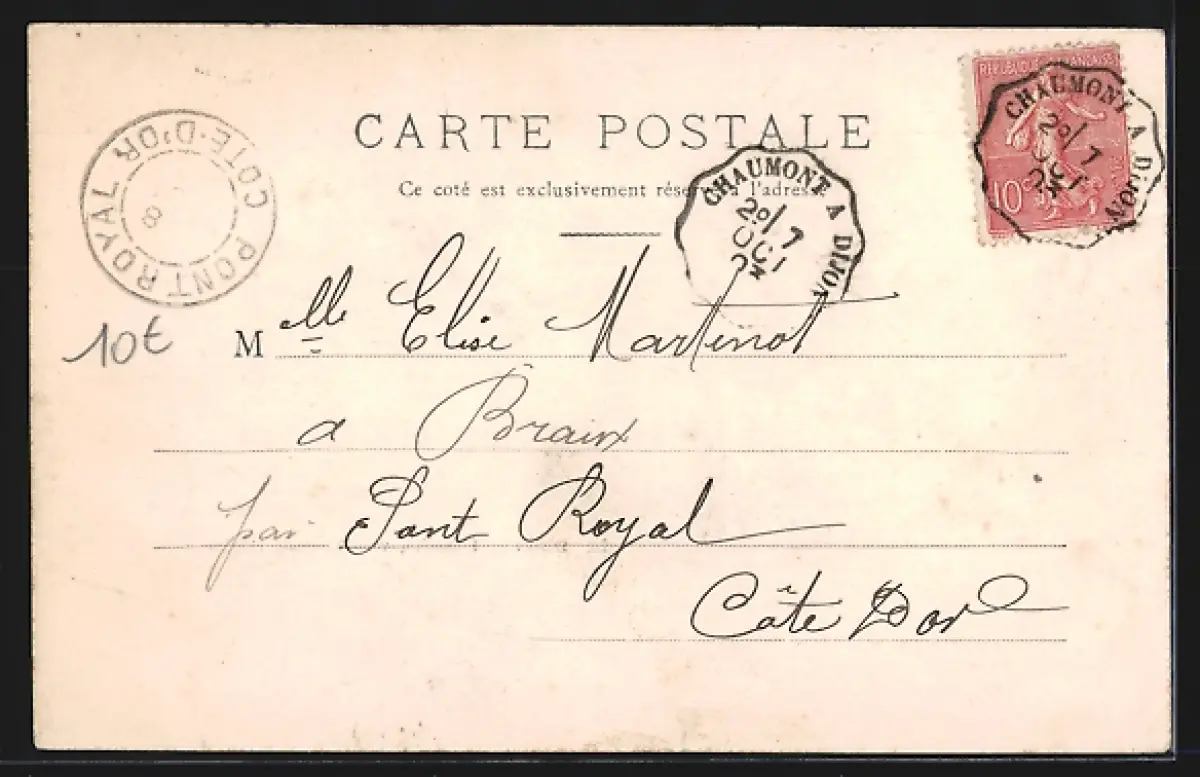 RÉPUBLIQUE FRANÇAISE
10c
CHAUMONT A DIJON
2º/ 7
OCT
CARTE POSTALE
Ce coté est exclusivement réservé à l'adresse
CHAUMONT A DIJON
2º/ 7
OCT
PONT ROYAL
COTE-D'OR
8
10€
Melle Elise Martenot
a Braux
par Pont Royal
Côte D'or